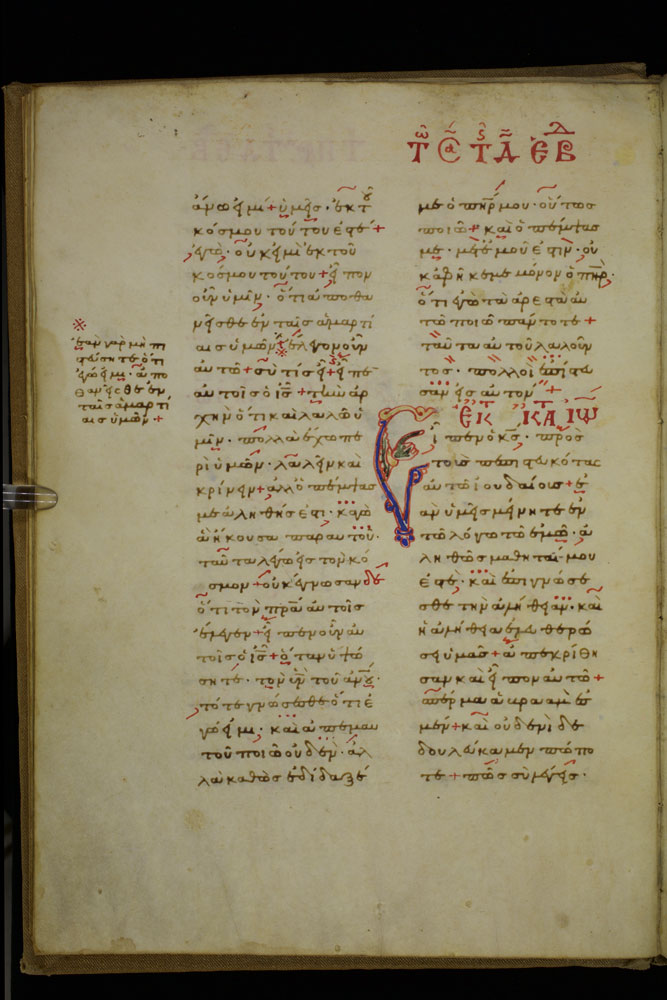 ἄνω εἰμί + ὑμεῖς · ἐκ τοῦ
κόσμου τούτου ἐστέ +
ἐγὼ · οὐκ εἰμὶ ἐκ τοῦ
κόσμου τούτου + εἶπον
οὖν ὑμῖν · ὅτι ἀποθα
νεῖσθε ἐν ταῖς ἁμαρτί
αις ὑμῶν + ἔλεγον οὖν
αὐτῷ + σὺ τίς εἶ + εἶπε
αὐτοῖς ὁ ις + τὴν ἀρ
χὴν ὅτι καὶ λαλῶ ὑ
μῖν · πολλὰ ἔχω πε
ρὶ ὑμῶν · λαλεῖν καὶ
κρίνειν + ἀλλ ὁ πέμψας
με ἀληθής ἐστι · κἀγὼ
ἃ ἤκουσα παρ αὐτοῦ ·
ταῦτα λέγω εἰς τὸν κό
σμον + οὐκ ἔγνωσαν δὲ
ὅτι τὸν πρα αὐτοῖς
ἔλεγεν + εἶπεν οὖν αὐ
τοῖς ὁ ις + ὅταν ὑψώ
σητε · τὸν υν τοῦ ανου ·
τότε γνώσεσθε ὅτι ἐ
γώ εἰμι · καὶ ἀπ ἐμαυ
τοῦ ποιῶ οὐδέν · ἀλ
λὰ καθὼς ἐδίδαξέ
※
ἐὰν γὰρ μὴ πι
στεύσητε ὅτι
ἐγώ εἰμι · ἀπο
θανεῖσθε ἐν
ταῖς ἁμαρτί
αις ὑμῶν +
με ὁ πηρ μου · οὕτως
ποιῶ + καὶ ὁ πέμψας
με · μετ ἐμοῦ ἐστιν · οὐ
κ ἀφῆκέ με μόνον ὁ πηρ ·
ὅτι ἐγὼ τὰ ἀρεστὰ αὐ
τῷ ποιῶ πάντοτε +
ταῦτα αὐτοῦ λαλοῦν
τος · πολλοὶ ἐπίστευ
σαν εἰς αὐτόν
ἐκ κτα ιω
Εἶπεν ὁ κς · πρὸς
τοὺς πεπιστευκότας
αὐτῷ ἰουδαίους + ἐ
ὰν ὑμεῖς μείνητε ἐν
τῷ λόγῳ τῷ ἐμῷ · ἀ
ληθῶς μαθηταί μου
ἐστέ · καὶ ἐπιγνώσε
σθε τὴν ἀλήθειαν · καὶ
ἡ ἀλήθεια ἐλευθερώ
σει ὑμᾶς + ἀπεκρίθη
σαν καὶ εἶπον αὐτῷ +
σπέρμα ἀβραάμ ἐσ
μεν + καὶ οὐδενὶ δε
δουλεύκαμεν πώπο
τε + πῶς σὺ λέγεις ·